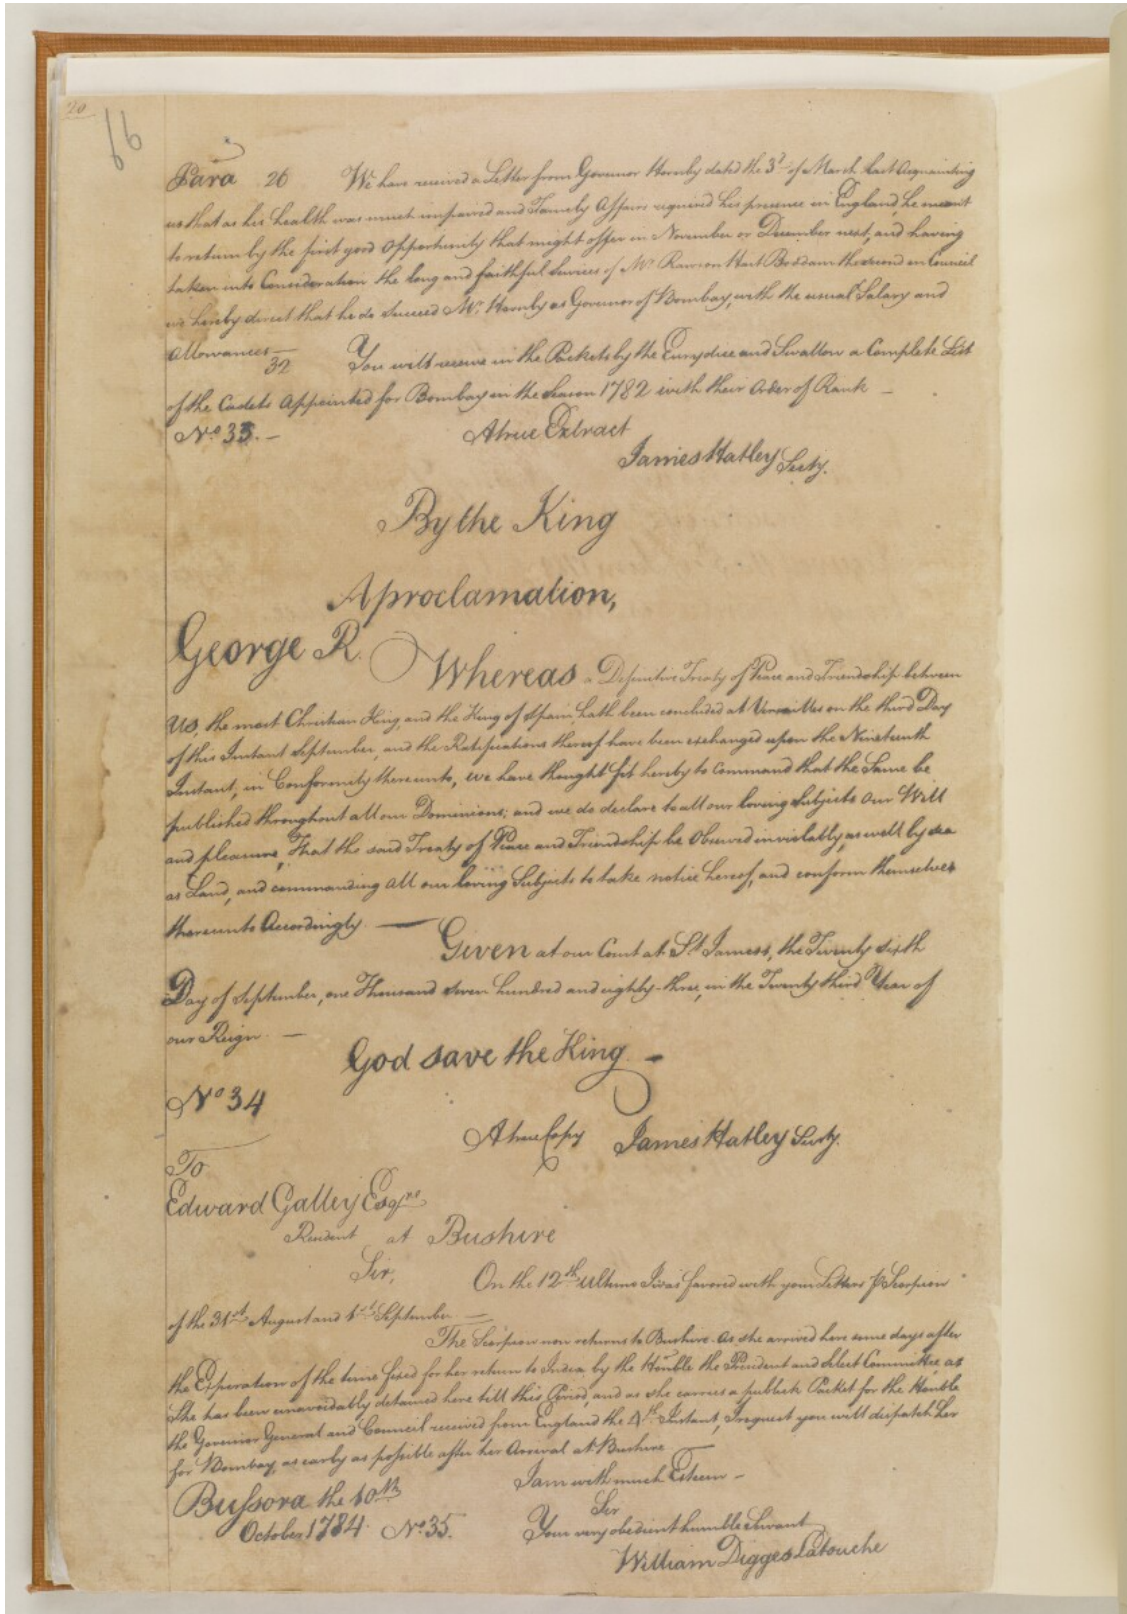 20
66
Para 26 We have received a Letter from Governor Hornby dated the 3d of March last Acquainting
us that as his health was much impaired and Family Affairs required his presence in England, he meant
to return by the first good Opportunity that might offer in November or December next, and having
taken into Consideration the long and faithful Services of Mr Rawson Hart Boddam the second in Council
we hereby direct that he do succeed Mr Hornby as Governor of Bombay, with the usual Salary and
Allowances —
32 You will receive in the Packets by the Eurydice and Swallow a Complete List
of the Cadets Appointed for Bombay in the Season 1782 with their Order of Rank —
No 33. — A true Extract
James Hatley Secty.
By the King
A proclamation,
George R. Whereas a Definitive Treaty of Peace and Friendship between
us, the most Christian King, and the King of Spain, hath been concluded at Versailles on the third Day
of this Instant September, and the Ratifications thereof have been exchanged upon the Nineteenth
Instant, in Conformity thereunto, we have thought fit hereby to Command that the Same be
published throughout all our Dominions; and we do declare to all our loving Subjects Our Will
and pleasure, That the said Treaty of Peace and Friendship be Observed inviolably, as well by sea
as Land, and commanding all our loving Subjects to take notice hereof, and conform themselves
thereunto Accordingly. —
Given at our Court at St James's, the Twenty sixth
Day of September, one Thousand seven hundred and eighty-three, in the Twenty third Year of
our Reign. —
God save the King —
No 34
A true Copy James Hatley Secty.
To
Edward Galley Esqre
Resident at Bushire
Sir, On the 12th Ultimo I was favored with your Letters p Scorpion
of the 31st August and 1st September —
The Scorpion now returns to Bushire. As she arrived here some days after
the Experation of the time fixed for her return to India by the Honble the President and Select Committee, as
She has been unavoidably detained here till this Period, and as she carries a publick Packet for the Honble
the Governor General and Council received from England the 4th Instant, I request you will dispatch her
for Bombay, as early as possible after her Arrival at Bushire.
I am with much Esteem —
Bussora the 10th Sir
October 1784. No 35. Your very obedient humble Servant
William Digges Latouche